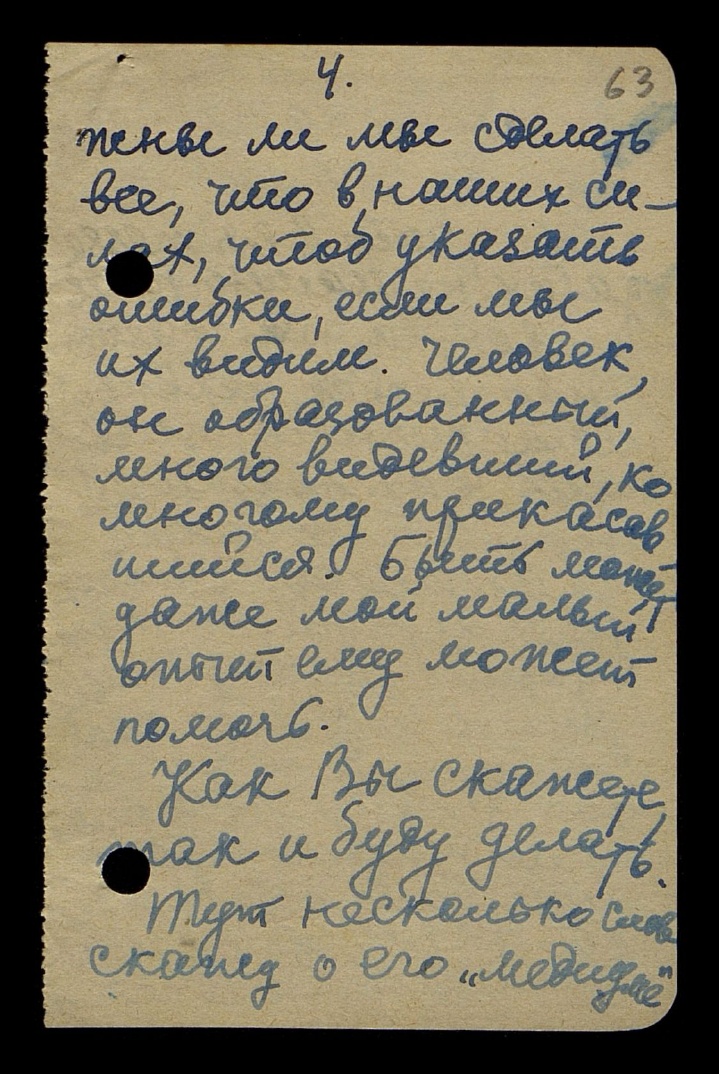 4.
63
жны ли мы сделать
все, что в наших си-
лах, чтоб указать
ошибки, если мы
их видим. Человек,
он образованный,
много видевший, ко
многому прикасав
шийся. Быть может
даже мой малый
опыт ему может
помочь.
Как Вы скажете,
так и буду делать.
Тут несколько слов
скажу о его „медиуме"